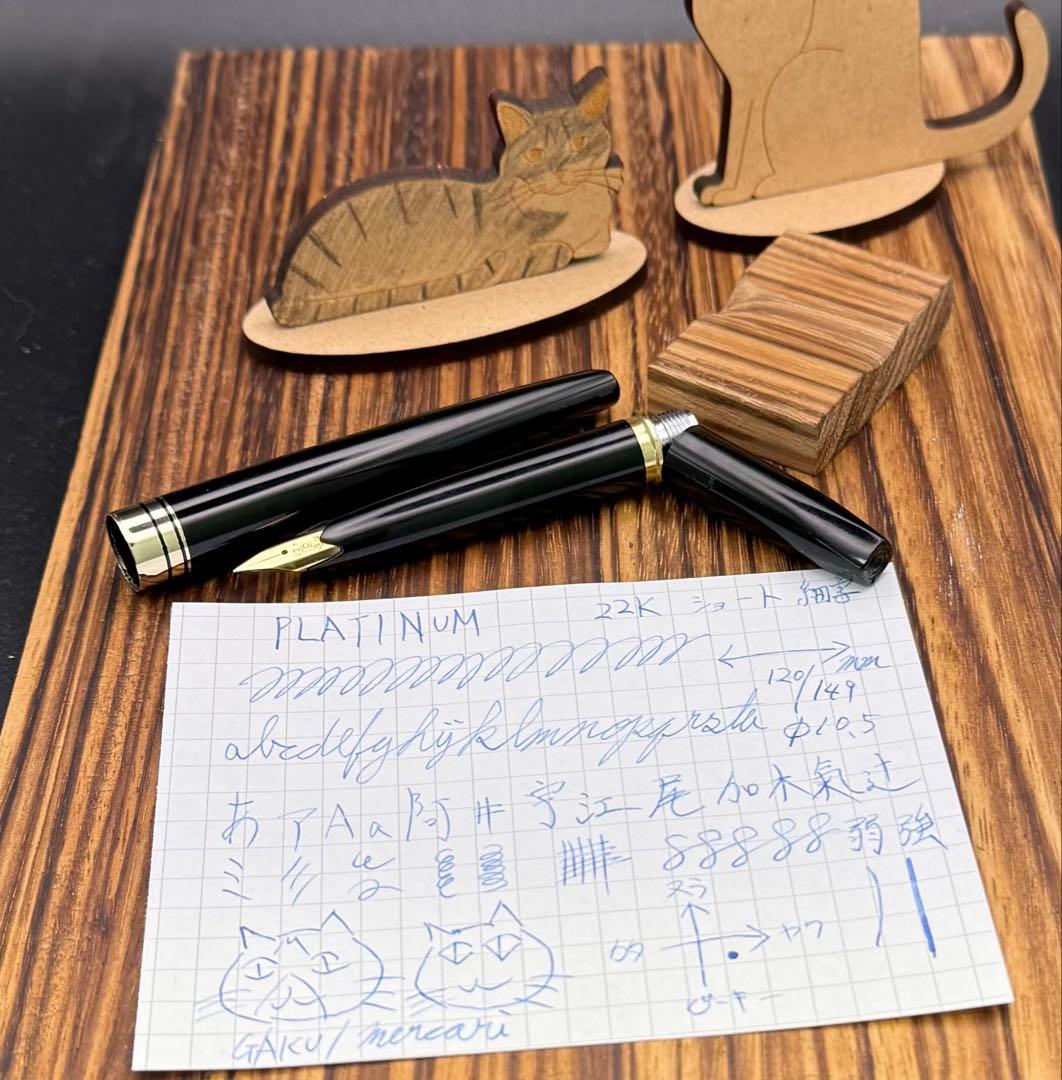 PLATINUM 22K ショート 細字
mm
120/149
abcdefghijklmnopqrstu φ10.5
あ ア A a 阿 井 宇 江 尾 加 木 氣 辻
弱 強
ヌラ
カタ ヤワ
ピーキー
GAKU/mercari